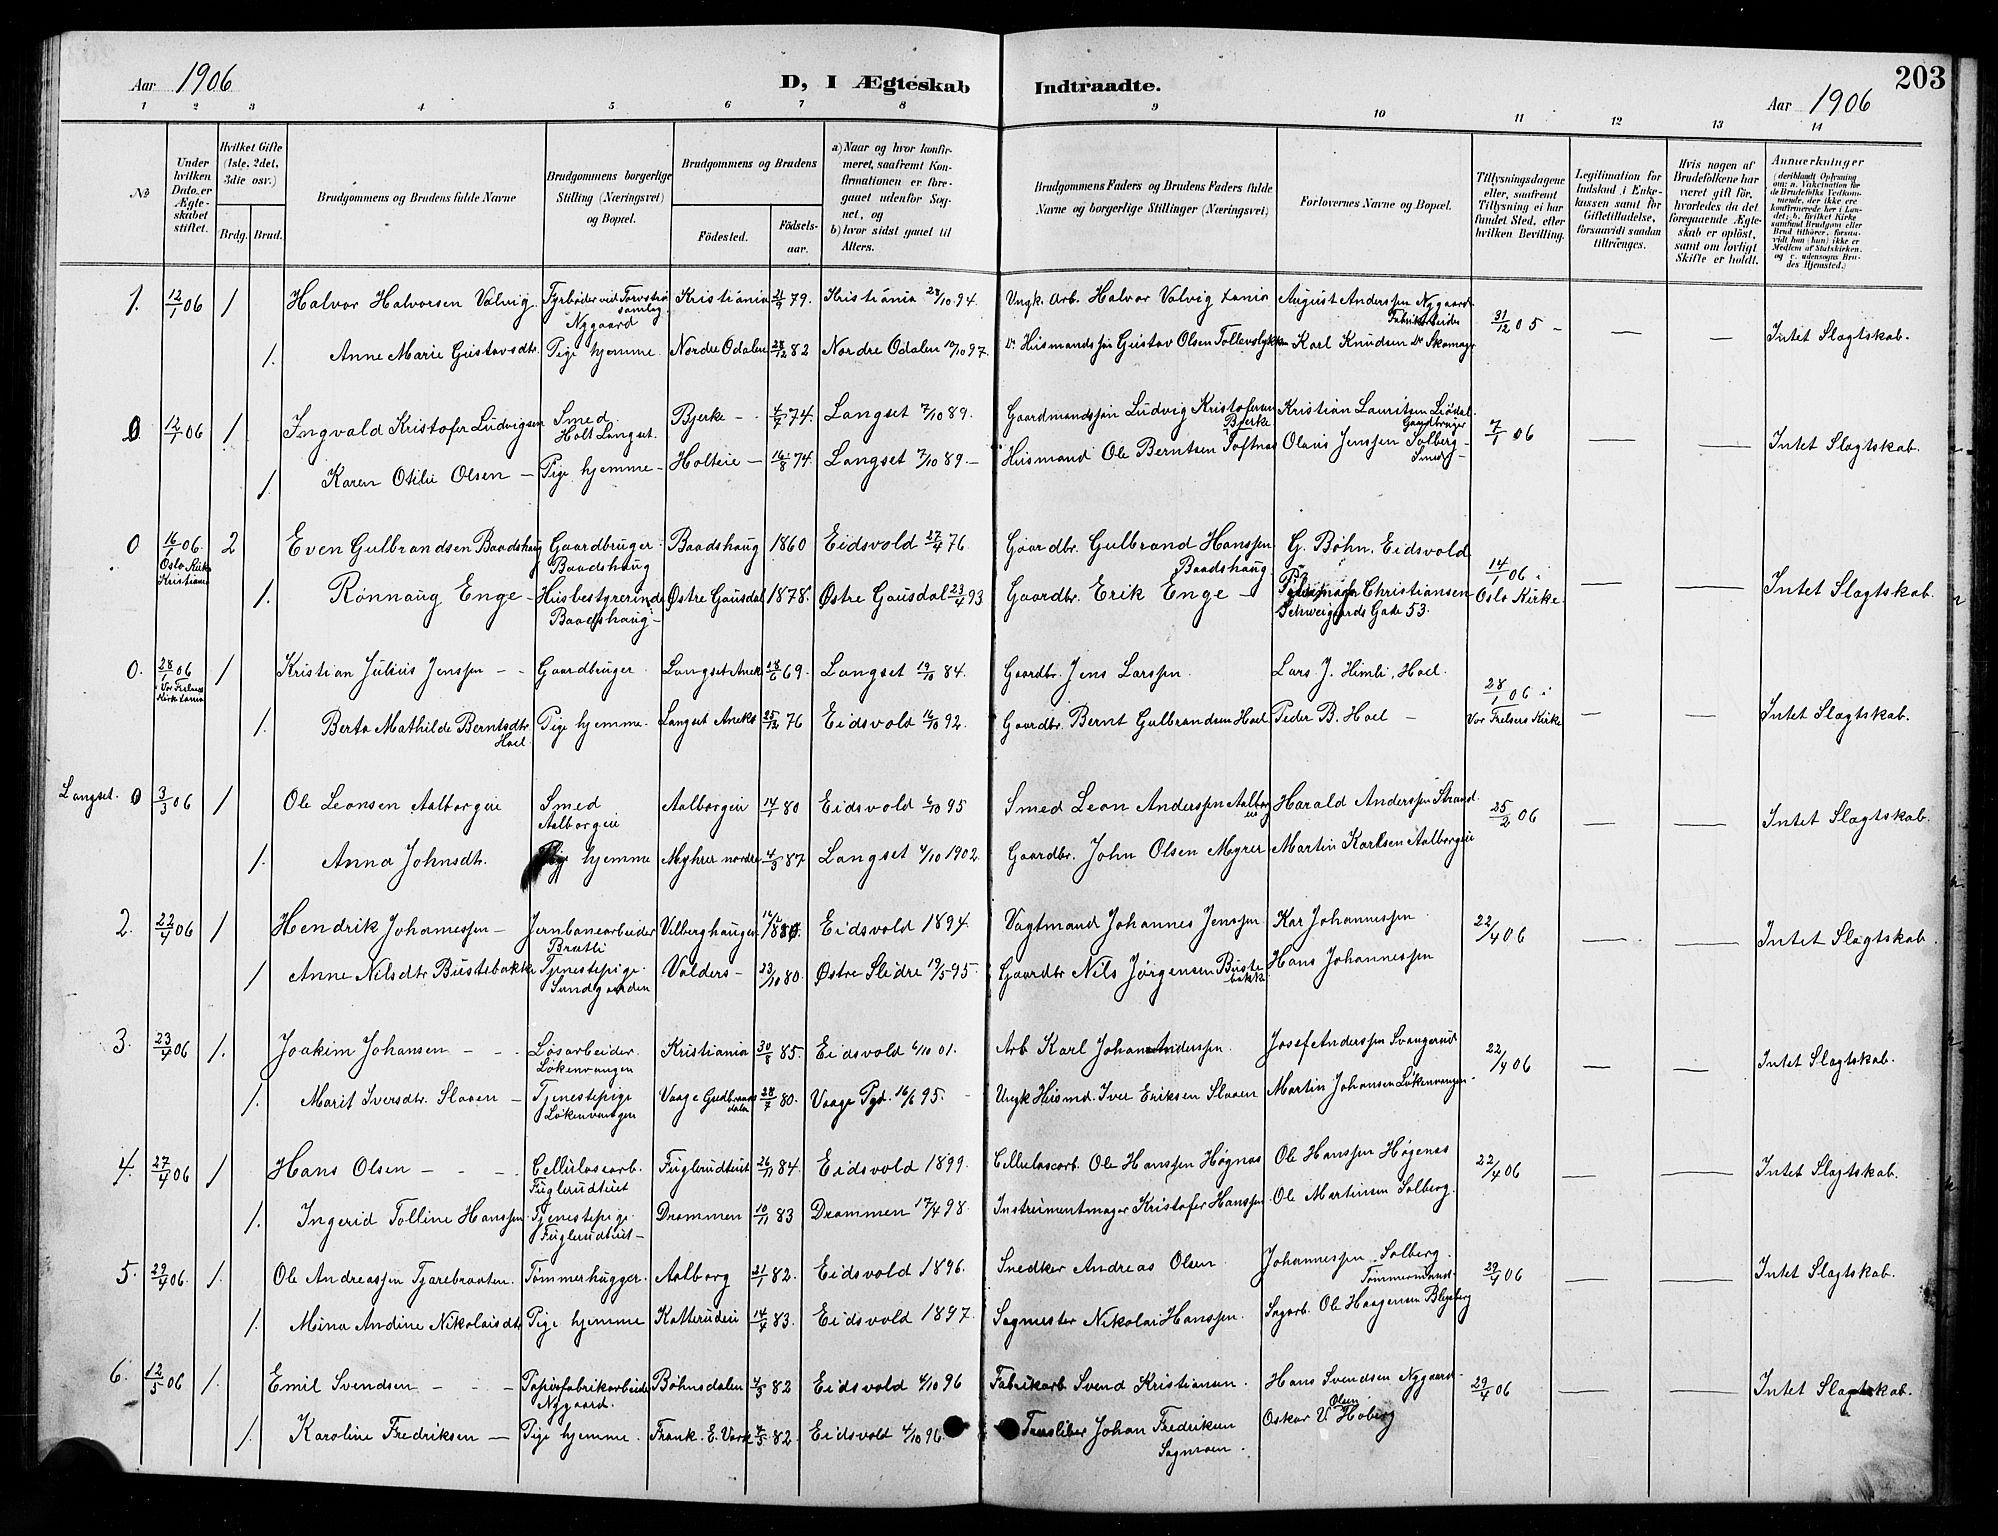 Aar 1906
D, I Ægteskab Indtraadte.
Aar 1906
203
1 2 3 4 5 6 7 8 9 10 11 12 13 14
№
Under hvilken Dato er Ægteskabet stiftet.
Hvilket Gifte (1ste, 2det, 3die osv.)
Brdg. Brud.
Brudgommens og Brudens fulde Navne
Brudgommens borgerlige Stilling (Næringsvei) og Bopæl.
Brudgommens og Brudens
Fødested.
Fødselsaar.
a) Naar og hvor konfirmeret, saafremt Konfirmationen er foregaaet udenfor Sognet, og
b) hvor sidst gaaet til Alters.
Brudgommens Faders og Brudens Faders fulde Navne og borgerlige Stillinger (Næringsvei)
Forlovernes Navne og Bopæl.
Tillysningsdagene eller, saafremt Tillysning ei har fundet Sted, efter hvilken Bevilling.
Legitimation for Indskud i Enkekassen samt for Giftetilladelse, forsaavidt saadan tiltrænges.
Hvis nogen af Brudefolkene har været gift før, hvorledes da det foregaaende Ægteskab er opløst, samt om lovligt Skifte er holdt.
Anmærkninger (deriblandt Oplysning om: a. Vakcination for de Brudefolks Vedkommende, der ikke ere konfirmerede her i Landet; b. hvilket Kirkesamfund Brudgom eller Brud tilhører, forsaavidt han (hun) ikke er Medlem af Statskirken, og c. udensogns Brudes Hjemsted.)
1. 12/1 06 1 Halvor Halvorsen Valvig Fyrbøder ved Torvstrøsamlag. Nygaard Kristiania 21/9 79. Kristiania 28/10 94. Ungk. Arb. Halvor Valvig August Anderssen Nygaard Fabrikarbeider 31/12 05 - — Intet Slægtskab.
1. Anne Marie Gustavsdtr. Pige hjemme. Nordre Odalen 28/12 82 Nordre Odalen 10/10 97. Do Husmandssøn Gustav Olsen Karl Knudsen Do Skomager
0 12/1 06 1. Ingvald Kristofer Ludvigsen Smed. Holt Langset. Bjerke - 4/7 74. Langset 7/10 89. Gaardmandssøn Ludvig Kristofersen Bjerke Kristian Lauritsen Gaardbruger 7/1 06 — — Intet Slægtskab.
1. Karen Otilie Olsen - Pige hjemme - Holteie - 16/8 74. Langset 7/10 89. - Husmand Ole Berntsen Toftnes Olaus Jenssen Solberg - Smed -
0 16/1 06. Oslo Kirke Kristiania 2 Even Gulbrandsen Baadshaug Gaardbruger Baadshaug Baadshaug 1860 Eidsvold 27/4 76. Gaardbr. Gulbrand Hanssen Baadshaug. G. Bøhn, Eidsvold 14/1 06 i Oslo Kirke. — — Intet Slægtskab.
1. Rønnaug Enge - Husbestyrerinde Baadshaug - Østre Gausdal 1878. Østre Gausdal 23/4 93 Gaardbr. Erik Enge - Christiansen Schweigaards Gade 53.
0. 28/1 06 Vor Frelsers Kirke 1 Kristian Julius Jenssen - - Gaardbruger. Langset Aneks 18/6 69. Langset 19/10 84. Gaardbr. Jens Larssen. Lars J. Himli, Hoel. 28/1 06 i Vor Frelsers Kirke — — Intet Slægtskab.
1. Berta Mathilde Berntsdtr. Hoel Pige hjemme. Langset Aneks 25/12 76 Eidsvold 16/10 92. Gaardbr. Bernt Gulbrandsen Hoel Peder B. Hoel -
Langset. 0 3/3 06 1 Ole Leonsen Aalborgeie Smed Aalborgeie Aalborgeie 14/1 80 Eidsvold 6/10 95 Smed Leon Anderssen Aalborgeie Harald Anderssen Strand. 25/2 06 — — Intet Slægtskab.
1. Anna Johnsdtr. Pige hjemme Myhrer nordre 4/3 87 Langset 4/10 1902. Gaardbr. John Olsen Myrer Martin Karlsen Aalborgeie
2. 22/4 06 1 Hendrik Johannessen - Jernbanearbeider Bratli Vilberghaugen 1880. Eidsvold 1894. Vagtmand Johannes Jenssen Kar Johannessen 22/4 06 — — Intet Slægtskab.
1 Anne Nilsdtr Bustebakke Tjenestepige. Sundgaarden Valders - 23/10 80. Østre Slidre 19/5 95. Gaardbr Nils Jørgensen Bustebakke Hans Johannessen
3. 23/4 06 1. Joakim Johansen - - Løsarbeider. Løkenvangen Kristiania 30/8 85. Eidsvold 6/10 01. Arb Karl Johan Anderssen. Josef Anderssen Svangerud 22/4 06 — — Intet Slægtskab.
1. Marit Iversdtr. Slaaen - Tjenestepige Løkenvangen Vaage Gudbrandsdalen 28/7 80. Vaage Pgd. 16/6 95. - Ungk Husmd. Iver Eriksen Slaaen Martin Johansen Løkenvangen.
4. 27/4 06 1 Hans Olsen - - - Cellulosearb. Fuglerudtuet Fuglerudtuet 26/11 84. Eidsvold 1899. Cellulosearb. Ole Hanssen Høgnas Ole Hanssen Høgenas 22/4 06 — — Intet Slægtskab.
1. Ingerid Tolline Hanssen. Tjenestepige. Fuglerudtuet - Drammen 10/11 83 Drammen 17/4 98. Instrumentmager Kristofer Hanssen. Ole Martinsen Solberg.
5. 29/4 06. 1. Ole Andreassen Tjærebraaten. Tømmerhugger. Aalborg 21/1 82. Eidsvold 1896. Snedker Andreas Olsen. Johannessen Solberg. Tømmermand. 29/4 06 — — Intet Slægtskab.
1. Mina Andine Nikolaisdtr. Pige hjemme Katterudeie 14/4 83. Eidsvold 1897. Sagmester Nikolai Hanssen. Sagarb. Ole Haagensen
6. 12/5 06 1. Emil Svendsen - - - Papirfabrikarbeider Nygaard. Bøhnsdalen 4/3 82 Eidsvold 4/10 96 Fabrikarb. Svend Kristiansen. Hans Svendsen Nygaard. 29/4 06 — — Intet Slægtskab.
1. Karoline Fredriksen - Pige hjemme. 82. Eidsvold 4/10 96. Træsliber Johan Fredriksen Sagmoen. Oskar V. Olsen Hoberg